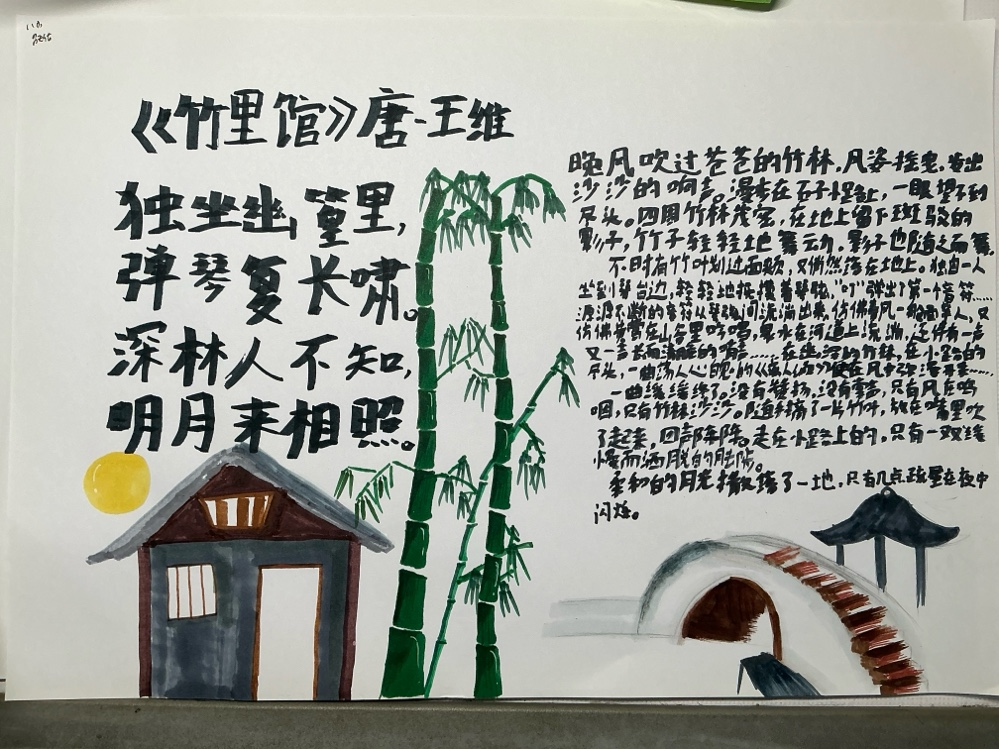 《竹里馆》唐·王维
独坐幽篁里,
弹琴复长啸。
深林人不知,
明月来相照。
晚风吹过苍苍的竹林,凡姿摇曳,发出
沙沙的响声。漫步在石子小路上,一眼望不到
尽头。四周竹林茂密,在地上留下斑驳的
影子,竹子轻轻地舞动,影子也随之而舞。
不时有竹叶划过面颊,又悄然落在地上。独自一人
坐到琴台边,轻轻地抚摸着琴弦,“叮”弹出了第一个音符……
源源不断的音符从琴弦间流淌出来,仿佛春风一般,又
仿佛黄莺在山谷里吟唱,泉水在河道上流淌,还伴有一声
又一声长而清脆的响声……在幽深的竹林,在小路的
尽头,一曲荡人心魄的在风中弥漫开来……
一曲缓缓终了。没有赞扬,没有掌声,只有风在呜
咽,只有竹林沙沙。随手摘了一片竹叶,放在嘴里吹
了起来。走在小路上的,只有一双缓
慢而洒脱的脚。
柔和的月光散落了一地,只有几点疏星在夜中
闪烁。